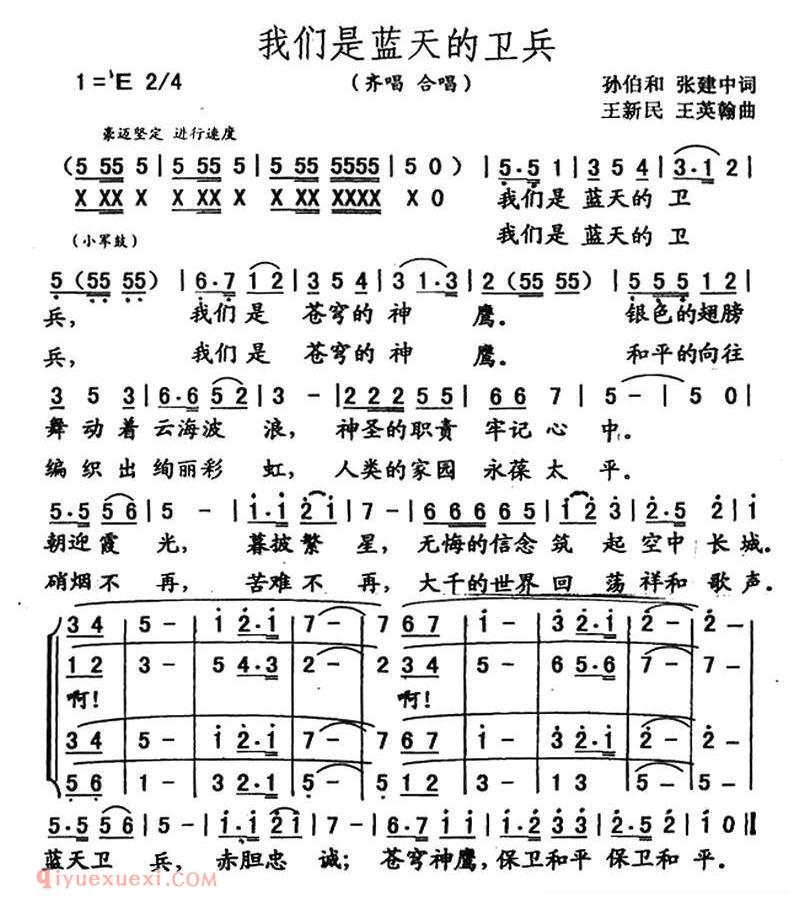 我们是蓝天的卫兵
1=♭E 2/4
（齐唱 合唱）
孙伯和 张建中词
王新民 王英翰曲
豪迈坚定 进行速度
(5 55 5 | 5 55 5 | 5 55 5555 | 5 0) | 5·5 1 | 3 5 4 | 3·1 2 |
X XX X X XX X X XX XXXX X 0 我们是 蓝天的 卫
(小军鼓) 我们是 蓝天的 卫
5 (55 55) | 6·7 1 2 | 3 5 4 | 3 1·3 | 2 (55 55) | 5 5 5 1 2 |
兵， 我们是 苍穹的 神 鹰。 银色的翅膀
兵， 我们是 苍穹的 神 鹰。 和平的向往
3 5 3 | 6·6 5 2 | 3 - | 2 2 2 5 5 | 6 6 7 | 5 - | 5 0 |
舞 动 着 云海波 浪， 神圣的职责 牢记 心 中。
编 织 出 绚丽彩 虹， 人类的家园 永葆 太 平。
5·5 5 6 | 5 - | i·i 2 i | 7 - | 6 6 6 6 5 | i 2 3 | 2·5 2 | i
朝迎霞 光， 暮披繁 星， 无悔的信念 筑 起 空中 长 城。
硝烟不 再， 苦难不 再， 大千的世界 回 荡 祥和 歌 声。
3 4 | 5 - | i 2·i | 7 - | 7 6 7 | i - | 3 2·i | 2 - | 2 -
1 2 | 3 - | 5 4·3 | 2 - | 2 3 4 | 5 - | 6 5·6 | 7 - | 7 -
啊！ 啊！
3 4 | 5 - | i 2·i | 7 - | 7 6 7 | i - | 3 2·i | 2 - | 2 -
5 6 | 1 - | 3 2·1 | 5 - | 5 1 2 | 3 - | 1 3 | 5 - | 5 -
5·5 5 6 | 5 - | i·i 2 i | 7 - | 6·7 i i | i·2 3 3 | 5·2 2 | i 0 ||
蓝天卫 兵， 赤胆忠 诚；苍穹神鹰，保卫和平 保卫和 平。
qiyuexuexi.com